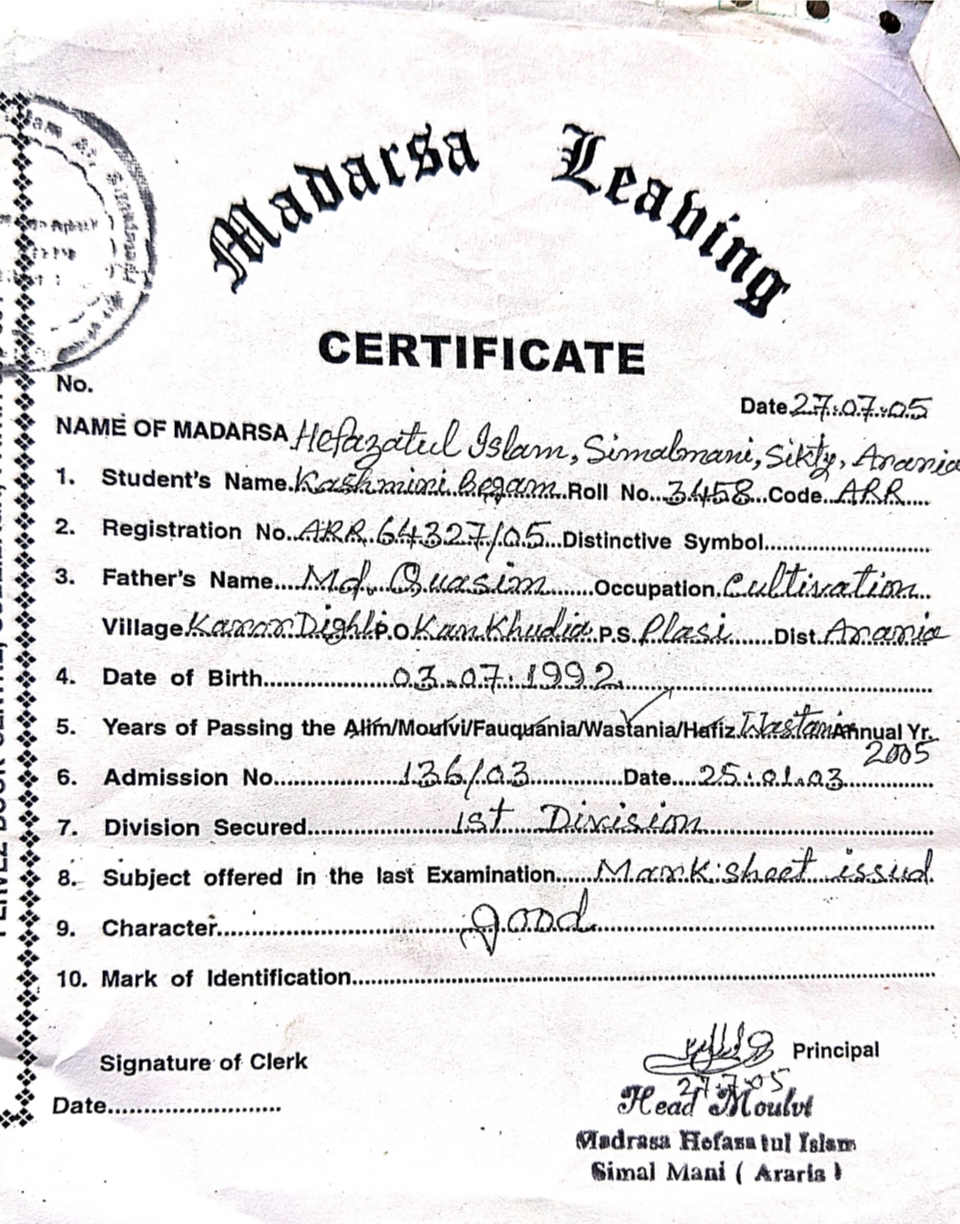 Madarsa Leaving
CERTIFICATE
No.
Date 27.07.05
NAME OF MADARSA Hefazatul Islam, Simalmani, Sikty, Araria
1. Student's Name Kashmini Begam Roll No. 3458 Code ARR
2. Registration No. ARR 64327/05 Distinctive Symbol
3. Father's Name Md. Quasim Occupation Cultivation
Village Kamar Dighli P.O Kankhudia P.S. Plasi Dist. Araria
4. Date of Birth 03.07.1992
5. Years of Passing the Alim/Moulvi/Fauquania/Wastania/Hafiz Wastania Annual Yr.
2005
6. Admission No. 136/03 Date 25.01.03
7. Division Secured 1st Division
8. Subject offered in the last Examination Mark sheet issud
9. Character good
10. Mark of Identification
Signature of Clerk
Principal
27.7.05
Date
Head Moulvi
Madrasa Hefasatul Islam
Simal Mani ( Araria )